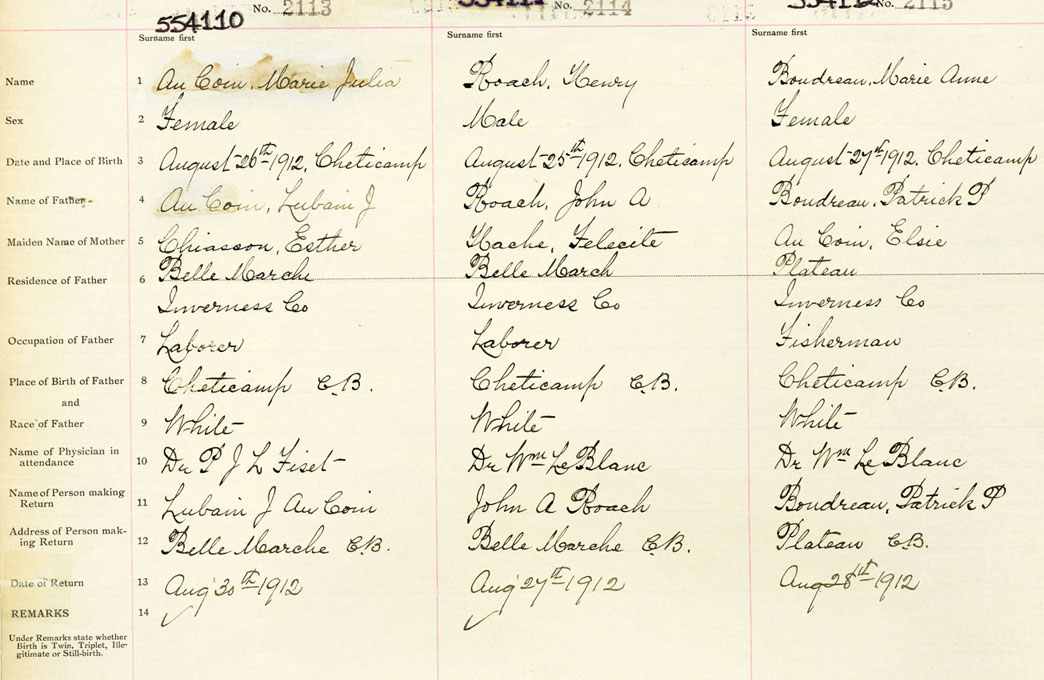 No. 2113 No. 2114 No. 2115
554110
Surname first Surname first Surname first
Name 1 Au Coin, Marie Julia Roach, Henry Boudreau, Marie Anne
Sex 2 Female Male Female
Date and Place of Birth 3 August 26th 1912, Cheticamp August 25th 1912, Cheticamp August 27th 1912, Cheticamp
Name of Father 4 Au Coin, Lubain J Roach, John A Boudreau, Patrick P
Maiden Name of Mother 5 Chiasson, Esther Hache, Felecite Au Coin, Elsie
Residence of Father 6 Belle Marche Belle March Plateau
Inverness Co Inverness Co Inverness Co
Occupation of Father 7 Laborer Laborer Fisherman
Place of Birth of Father 8 Cheticamp C.B. Cheticamp C.B. Cheticamp C.B.
and
Race of Father 9 White White White
Name of Physician in
attendance 10 Dr P J L Fiset Dr Wm LeBlanc Dr Wm Le Blanc
Name of Person making
Return 11 Lubain J Au Coin John A Roach Boudreau, Patrick P
Address of Person mak-
ing Return 12 Belle Marche C.B. Belle Marche C.B. Plateau C.B.
Date of Return 13 Aug 30th 1912 Aug 27th 1912 Aug 28th 1912
REMARKS 14
Under Remarks state whether
Birth is Twin, Triplet, Ille-
gitimate or Still-birth.